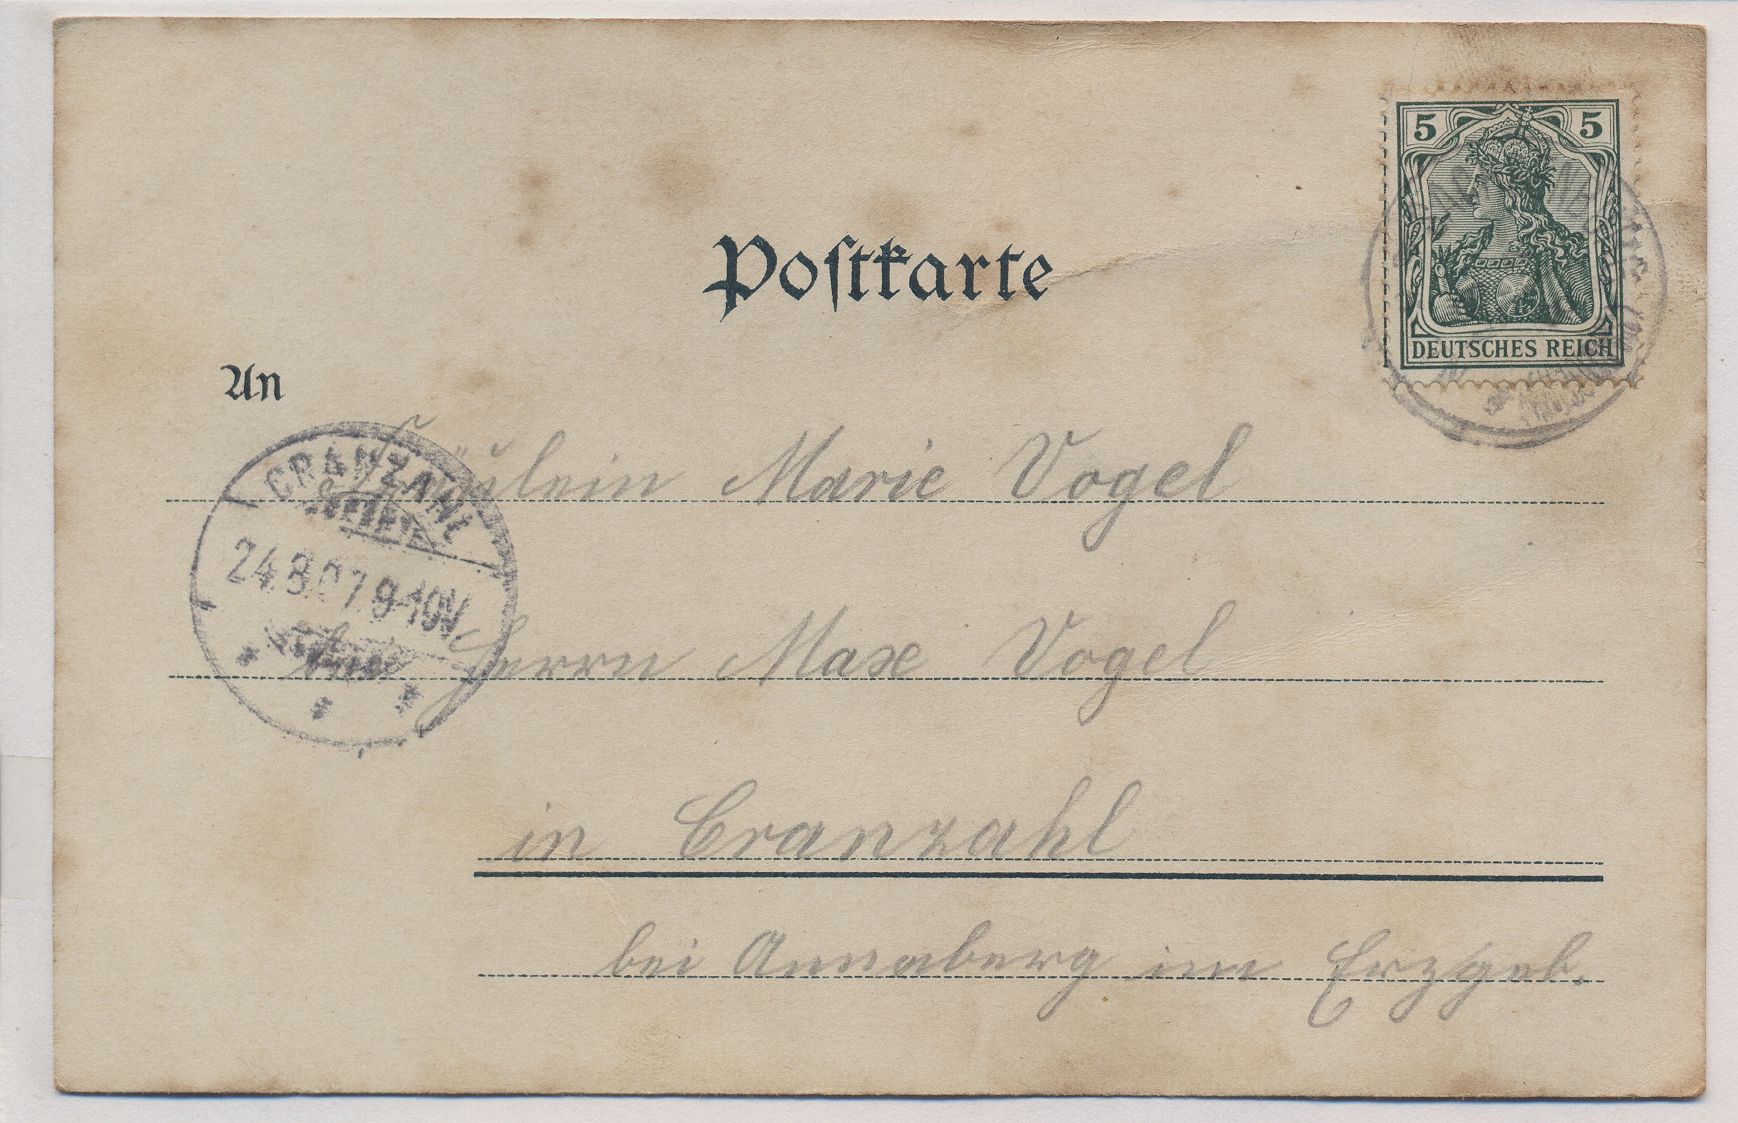 5 5
DEUTSCHES REICH
Postkarte
An
Fräulein Marie Vogel
CRANZAHL
24.8.07.9-10V
Herrn Max Vogel
in Cranzahl
bei Annaberg im Erzgeb.